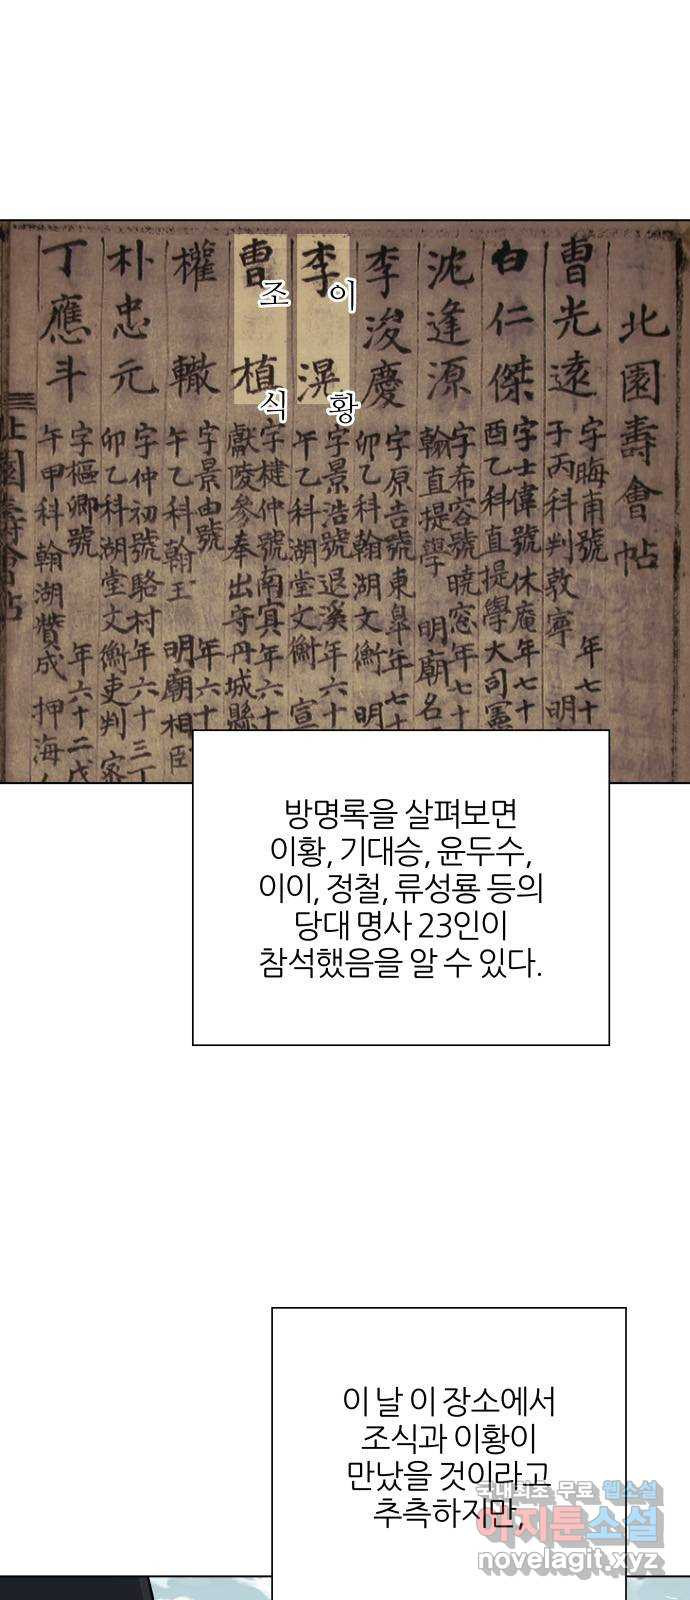 北園壽會帖
曹光遠
字晦甫號 年七十
子丙科判敦寧 明
白仁傑
字士偉號休庵年七十
酉乙科直提學大司憲
沈逢源
字希容號曉窓年七十
翰直提學 明廟名
李浚慶
字原吉號東皐年七十
卯乙科翰湖文衡 明
李滉
이황
字景浩號退溪年六十
午乙科湖堂文衡 宣
曹植
조식
字楗仲號南冥年六十
獻陵參奉出守丹城縣
權轍
字景由號 年六十
午乙科翰王 明廟相臣
朴忠元
字仲初號駱村年六十三丁
卯乙科湖堂文衡吏判
丁應斗
字樞卿號 年六十二戊
午甲科翰湖贊成押海
北園壽會帖
방명록을 살펴보면
이황, 기대승, 윤두수,
이이, 정철, 류성룡 등의
당대 명사 23인이
참석했음을 알 수 있다.
이 날 이 장소에서
조식과 이황이
만났을 것이라고
추측하지만,
국내최초 무료 웹소설
아지툰소설
novelagit.xyz